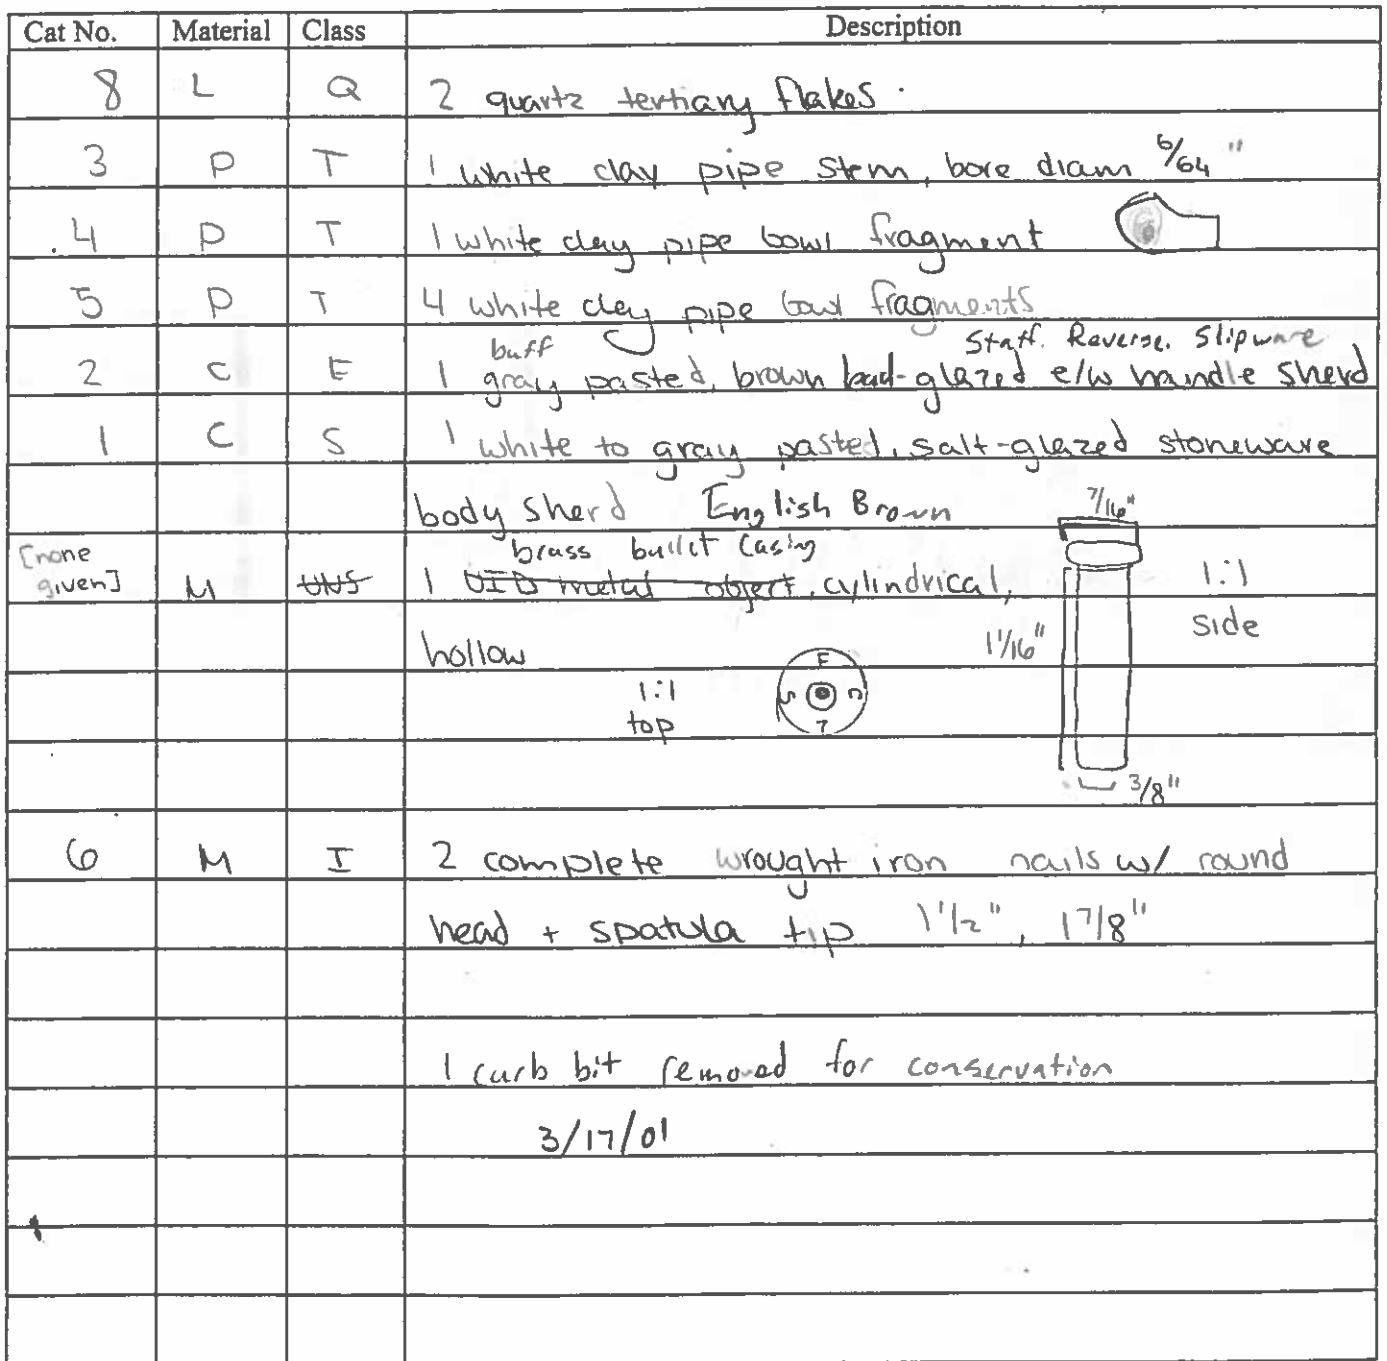 Cat No. Material Class Description
8 L Q 2 quartz tertiary flakes.
3 P T 1 white clay pipe stem, bore diam 6/64"
4 P T 1 white clay pipe bowl fragment
5 P T 4 white clay pipe bowl fragments
buff Staff. Reverse. Slipware
2 C E 1 gray pasted, brown lead-glazed e/w handle sherd
1 C S 1 white to gray pasted, salt-glazed stoneware
body sherd English Brown 7/16"
[none brass bullet casing
given] M UNS 1 UID metal object, cylindrical, 1:1
side
hollow 1 1/16"
1:1
top
F
S
7
3/8"
6 M I 2 complete wrought iron nails w/ round
head + spatula tip 1 1/2", 1 7/8"
1 curb bit removed for conservation
3/17/01